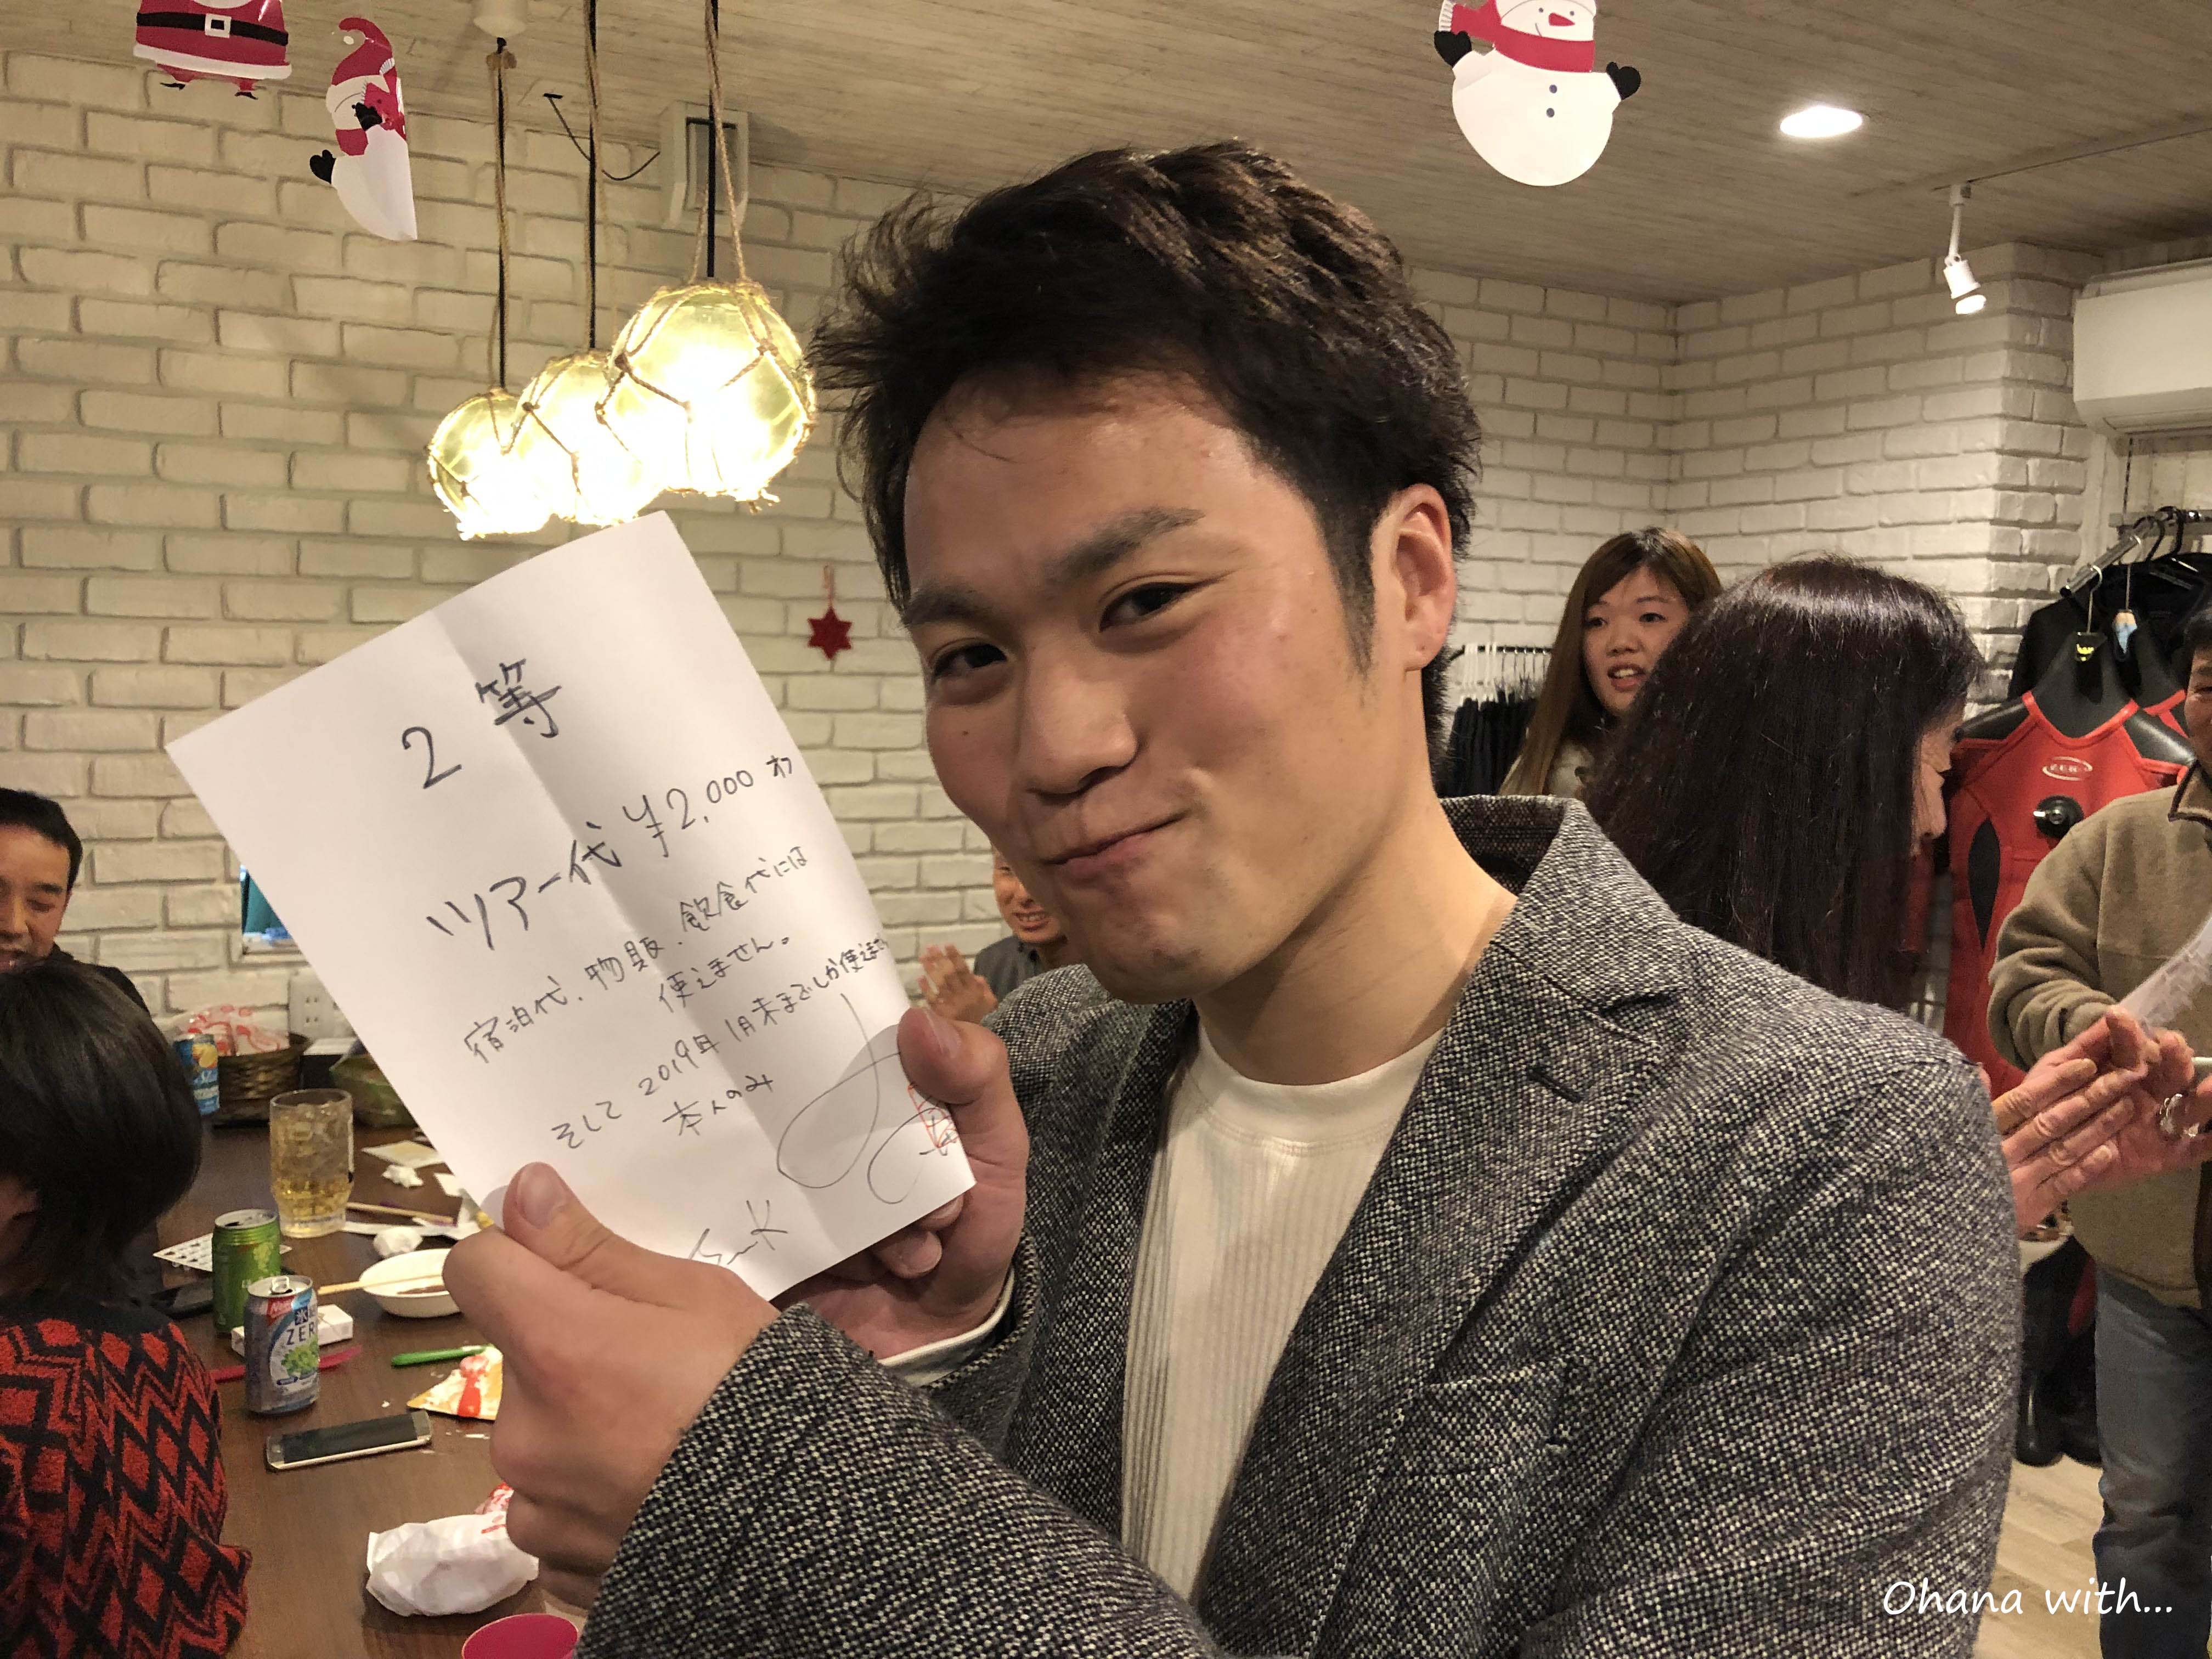 2等
ツアー代 ¥2,000 オフ
宿泊代、物販、飲食代には
使えません。
そして 2019年 1月末までしか使えません
本人のみ
ZERO
Ohana with...